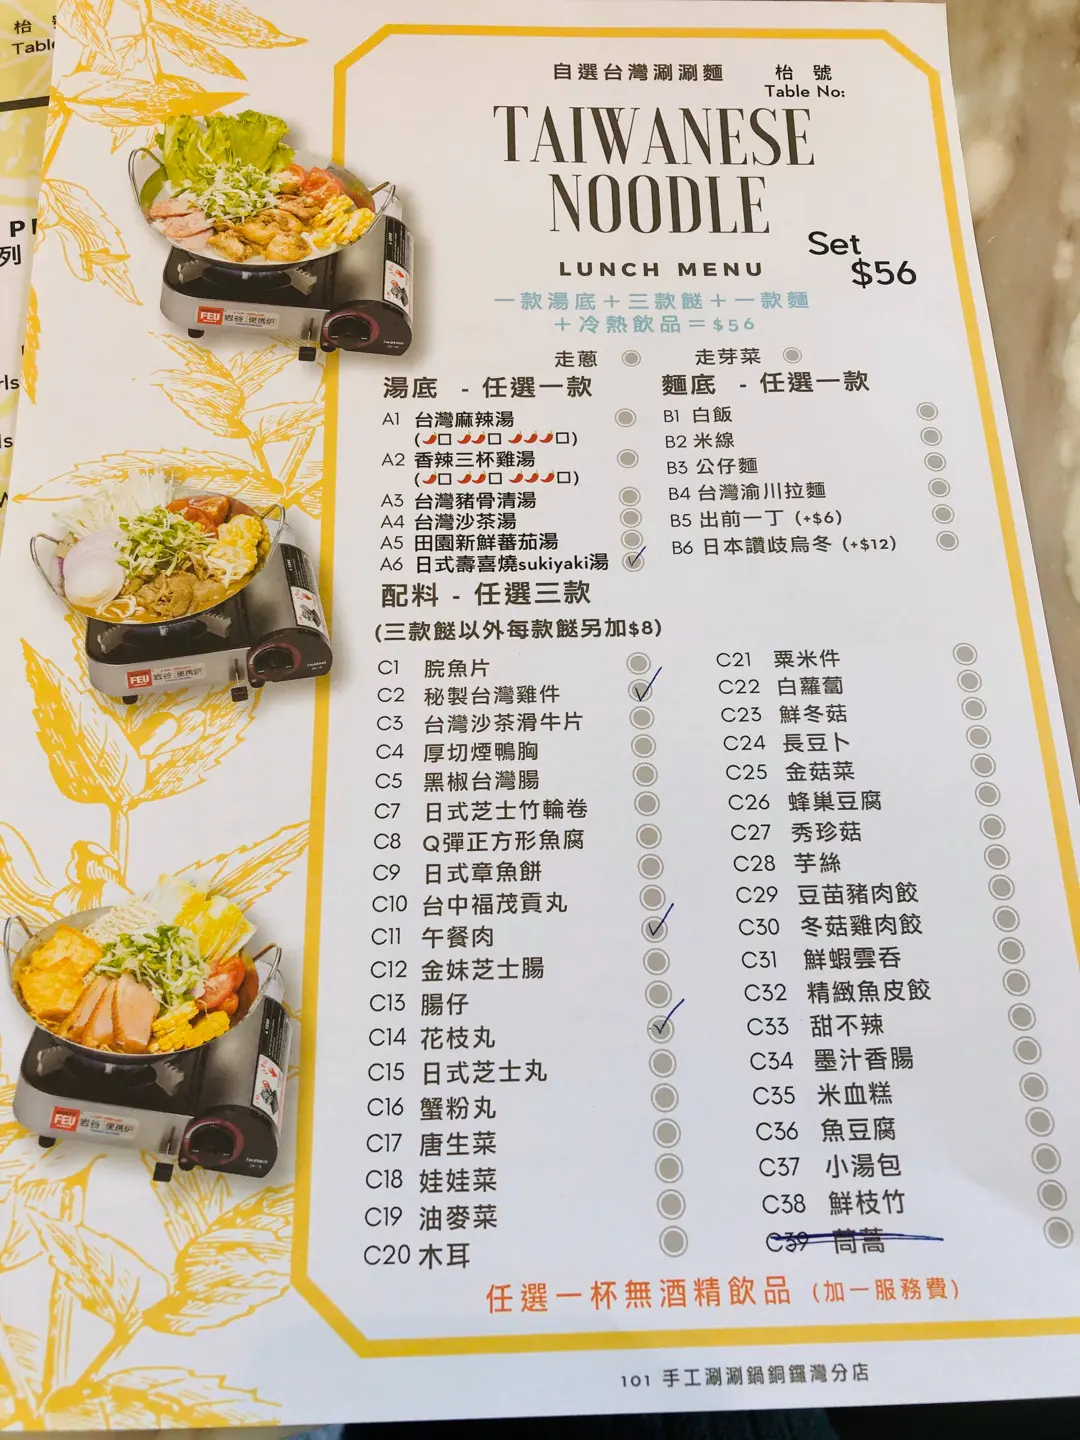 枱
Table
P
列
rls
ls
自選台灣涮涮麵
枱 號
Table No:
TAIWANESE
NOODLE
LUNCH MENU
Set
$56
一款湯底＋三款餸＋一款麵
＋冷熱飲品＝$56
走蔥
走芽菜
湯底 - 任選一款
A1 台灣麻辣湯
(🌶□ 🌶🌶□ 🌶🌶🌶□)
A2 香辣三杯雞湯
(🌶□ 🌶🌶□ 🌶🌶🌶□)
A3 台灣豬骨清湯
A4 台灣沙茶湯
A5 田園新鮮蕃茄湯
A6 日式壽喜燒sukiyaki湯
麵底 - 任選一款
B1 白飯
B2 米線
B3 公仔麵
B4 台灣渝川拉麵
B5 出前一丁 (+$6)
B6 日本讚歧烏冬 (+$12)
配料 - 任選三款
(三款餸以外每款餸另加$8)
C1 脘魚片
C2 秘製台灣雞件
C3 台灣沙茶滑牛片
C4 厚切煙鴨胸
C5 黑椒台灣腸
C7 日式芝士竹輪卷
C8 Q彈正方形魚腐
C9 日式章魚餅
C10 台中福茂貢丸
C11 午餐肉
C12 金妹芝士腸
C13 腸仔
C14 花枝丸
C15 日式芝士丸
C16 蟹粉丸
C17 唐生菜
C18 娃娃菜
C19 油麥菜
C20 木耳
C21 粟米件
C22 白蘿蔔
C23 鮮冬菇
C24 長豆卜
C25 金菇菜
C26 蜂巢豆腐
C27 秀珍菇
C28 芋絲
C29 豆苗豬肉餃
C30 冬菇雞肉餃
C31 鮮蝦雲吞
C32 精緻魚皮餃
C33 甜不辣
C34 墨汁香腸
C35 米血糕
C36 魚豆腐
C37 小湯包
C38 鮮枝竹
C39 茼蒿
任選一杯無酒精飲品 (加一服務費)
101 手工涮涮鍋銅鑼灣分店
FEU 岩谷 便携炉
FEU 岩谷 便携炉
FEU 岩谷 便携炉